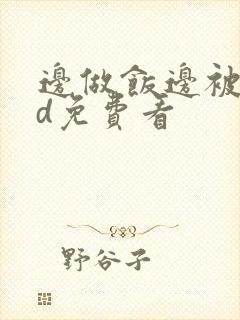 邊做飯邊被
d免費看
野谷子